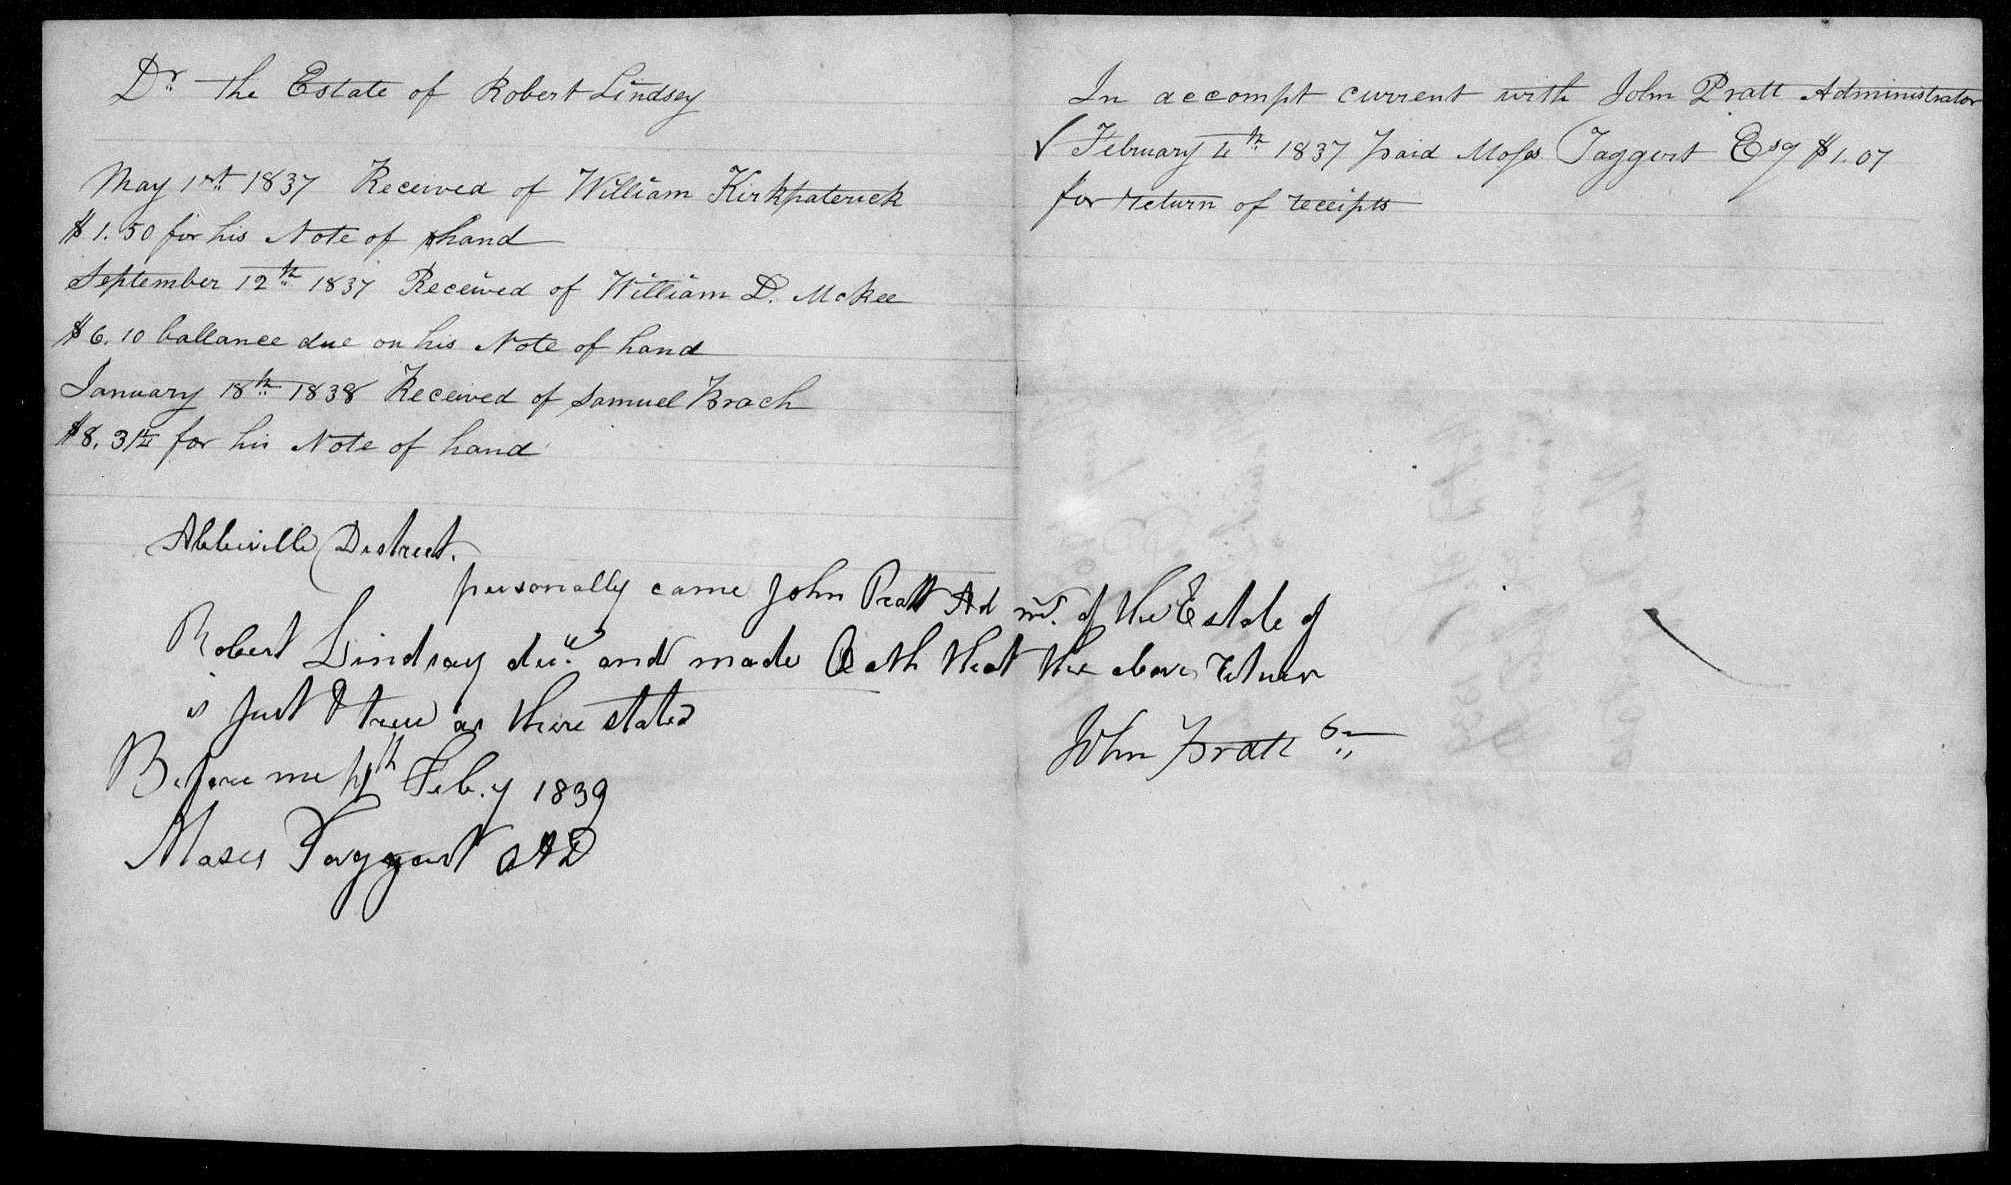 Dr The Estate of Robert Lindsey
May 1st 1837 Received of William Kirkpaterick
$1.50 for his Note of hand
September 12th 1837 Received of William D. McKee
$6.10 ballance due on his Note of hand
January 18th 1838 Received of Samuel Brach
$8.31¼ for his Note of hand
In accompt current with John Pratt Administrator
February 4th 1837 paid Moses Taggert Esq $1.07
for return of receipts
Abbeville District.
personally came John Pratt Admr. of the Estate of
Robert Lindsay decd. and made Oath that the above return
is just & true as there stated
Before me Feb.y 1839
Moses Taggart OAD
John Pratt Sr